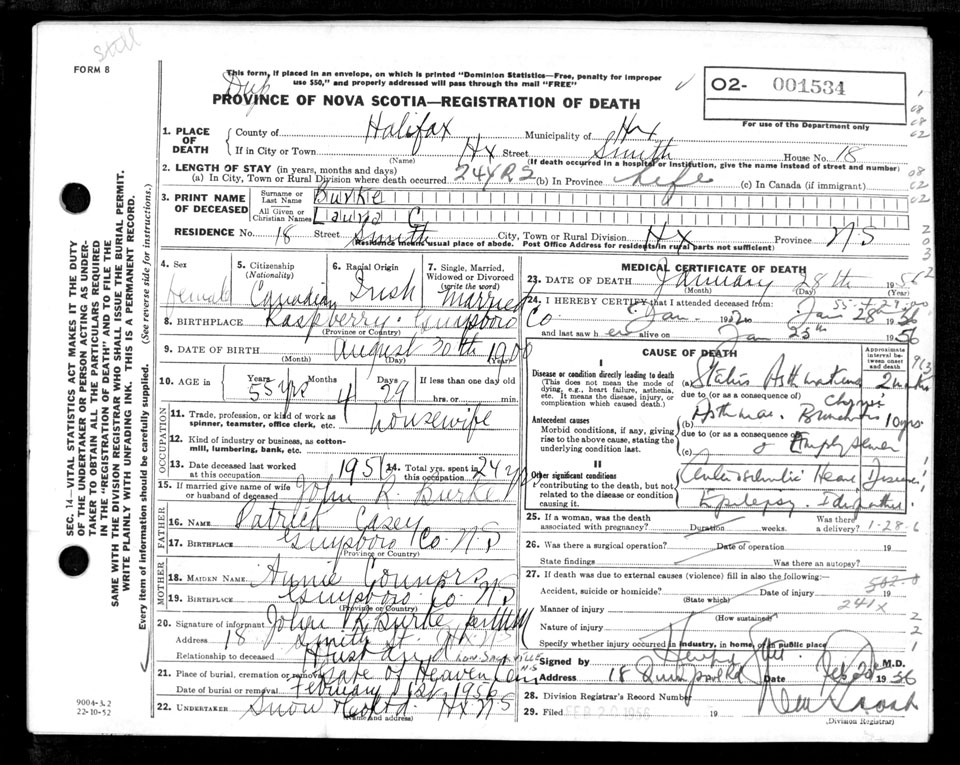 Still
FORM 8
This form, if placed in an envelope, on which is printed "Dominion Statistics—Free, penalty for improper
use $50," and properly addressed will pass through the mail "FREE"
Dup
PROVINCE OF NOVA SCOTIA—REGISTRATION OF DEATH
O2- 001534
For use of the Department only
1. PLACE OF DEATH
County of Halifax Municipality of Hx
If in City or Town Hx Street Smith House No. 18
(Name) (If death occurred in a hospital or institution, give the name instead of street and number)
2. LENGTH OF STAY (in years, months and days)
(a) In City, Town or Rural Division where death occurred 24 YRS (b) In Province Life (c) In Canada (if immigrant)
3. PRINT NAME OF DECEASED
Surname or Last Name Burke
All Given or Christian Names Laura C
RESIDENCE No. 18 Street Smith City, Town or Rural Division Hx Province N.S
(Residence means usual place of abode. Post Office Address for residents in rural parts not sufficient)
4. Sex female
5. Citizenship (Nationality) Canadian
6. Racial Origin Irish
7. Single, Married, Widowed or Divorced (write the word) Married
8. BIRTHPLACE Raspberry. Guysboro Co
(Province or Country)
9. DATE OF BIRTH August 30th 1900
(Month) (Day) (Year)
10. AGE in Years Months Days If less than one day old
55 yrs 4 29 hrs. or min.
OCCUPATION
11. Trade, profession, or kind of work as spinner, teamster, office clerk, etc. Housewife
12. Kind of industry or business, as cotton-mill, lumbering, bank, etc.
13. Date deceased last worked at this occupation 1956
14. Total yrs. spent in this occupation 24 yrs
15. If married give name of wife or husband of deceased John R. Burke
FATHER
16. NAME Patrick Casey
17. BIRTHPLACE Guysboro Co N.S
(Province or Country)
MOTHER
18. MAIDEN NAME Annie Connors
19. BIRTHPLACE Guysboro Co NS
(Province or Country)
20. Signature of informant John R Burke
Address 18 Smith St.
Relationship to deceased Husband
21. Place of burial, cremation or removal Gate of Heaven Cem
Date of burial or removal February 1st 1956
22. UNDERTAKER Snow & Co Ltd. Hx NS
(Name and address)
MEDICAL CERTIFICATE OF DEATH
23. DATE OF DEATH January 28th 1956
(Month) (Day) (Year)
24. I HEREBY CERTIFY that I attended deceased from:
Jan 1952 to Jan 28 1956
and last saw her alive on Jan 25th 1956
CAUSE OF DEATH
Approximate interval between onset and death
I
Disease or condition directly leading to death
(This does not mean the mode of dying, e.g., heart failure, asthenia, etc. It means the disease, injury, or complication which caused death.)
(a) Status Asthmaticus 2 weeks
due to (or as a consequence of)
Antecedent causes
Morbid conditions, if any, giving rise to the above cause, stating the underlying condition last.
(b) Asthma. Chronic Bronchitis 10 yrs
due to (or as a consequence of)
(c) & Emphysema
II
Other significant conditions
contributing to the death, but not related to the disease or condition causing it.
Heart Disease
Epilepsy. Idiopathic
25. If a woman, was the death associated with pregnancy? Duration weeks. Was there a delivery? 1-28-6
26. Was there a surgical operation? Date of operation 19
State findings Was there an autopsy?
27. If death was due to external causes (violence) fill in also the following:—
Accident, suicide or homicide? Date of injury 19
(State which)
241x
Manner of injury
(How sustained)
Nature of injury
Specify whether injury occurred in industry, in home, or in public place
Signed by M.D.
Address 18 Quinpool Rd Date Feb 20 1956
28. Division Registrar's Record Number
29. Filed FEB 20 1956 19
(Division Registrar)
SEC. 14—VITAL STATISTICS ACT MAKES IT THE DUTY
OF THE UNDERTAKER OR PERSON ACTING AS UNDER-
TAKER TO OBTAIN ALL THE PARTICULARS REQUIRED
IN THE "REGISTRATION OF DEATH" AND TO FILE THE
SAME WITH THE DIVISION REGISTRAR WHO SHALL ISSUE THE BURIAL PERMIT.
WRITE PLAINLY WITH UNFADING INK. THIS IS A PERMANENT RECORD.
Every item of information should be carefully supplied. (See reverse side for instructions.)
9004-3.2
22-10-52